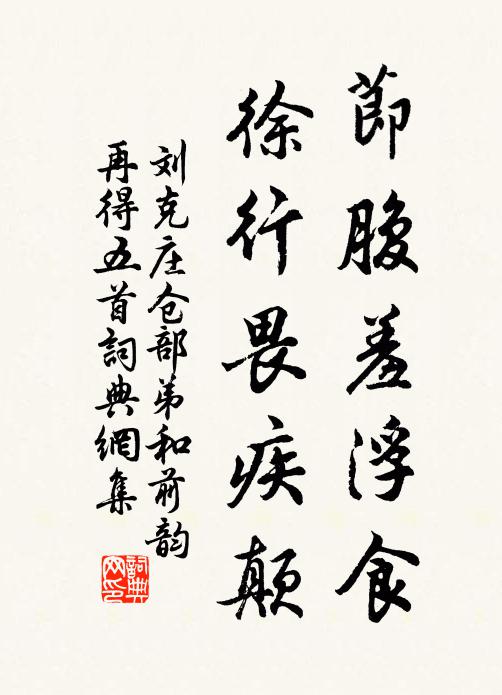 節腹羞浮食
徐行畏疾颠
刘克庄仓部弟和前韵
再得五首詞典網集
詞典
网印